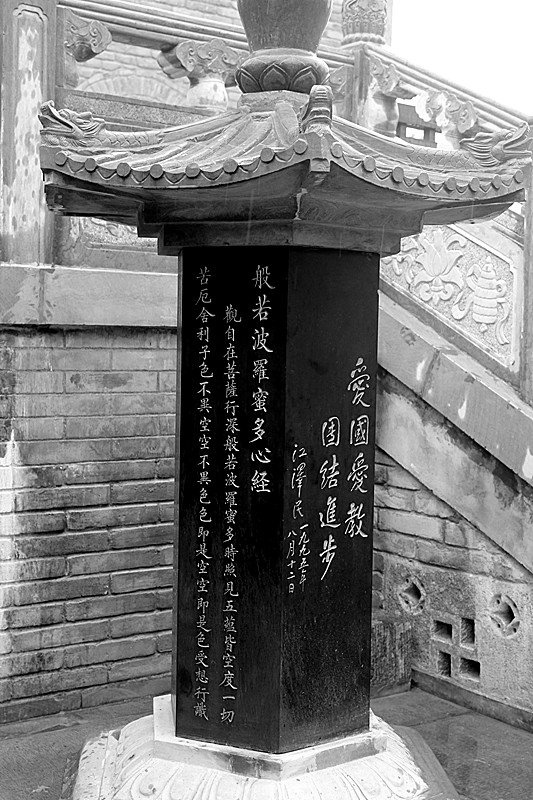 愛國愛教
團结進步
江澤民一九九五年
八月十二日
般若波羅蜜多心经
觀自在菩薩行深般若波羅蜜多時照見五蘊皆空度一切
苦厄舍利子色不異空空不異色色即是空空即是色受想行識